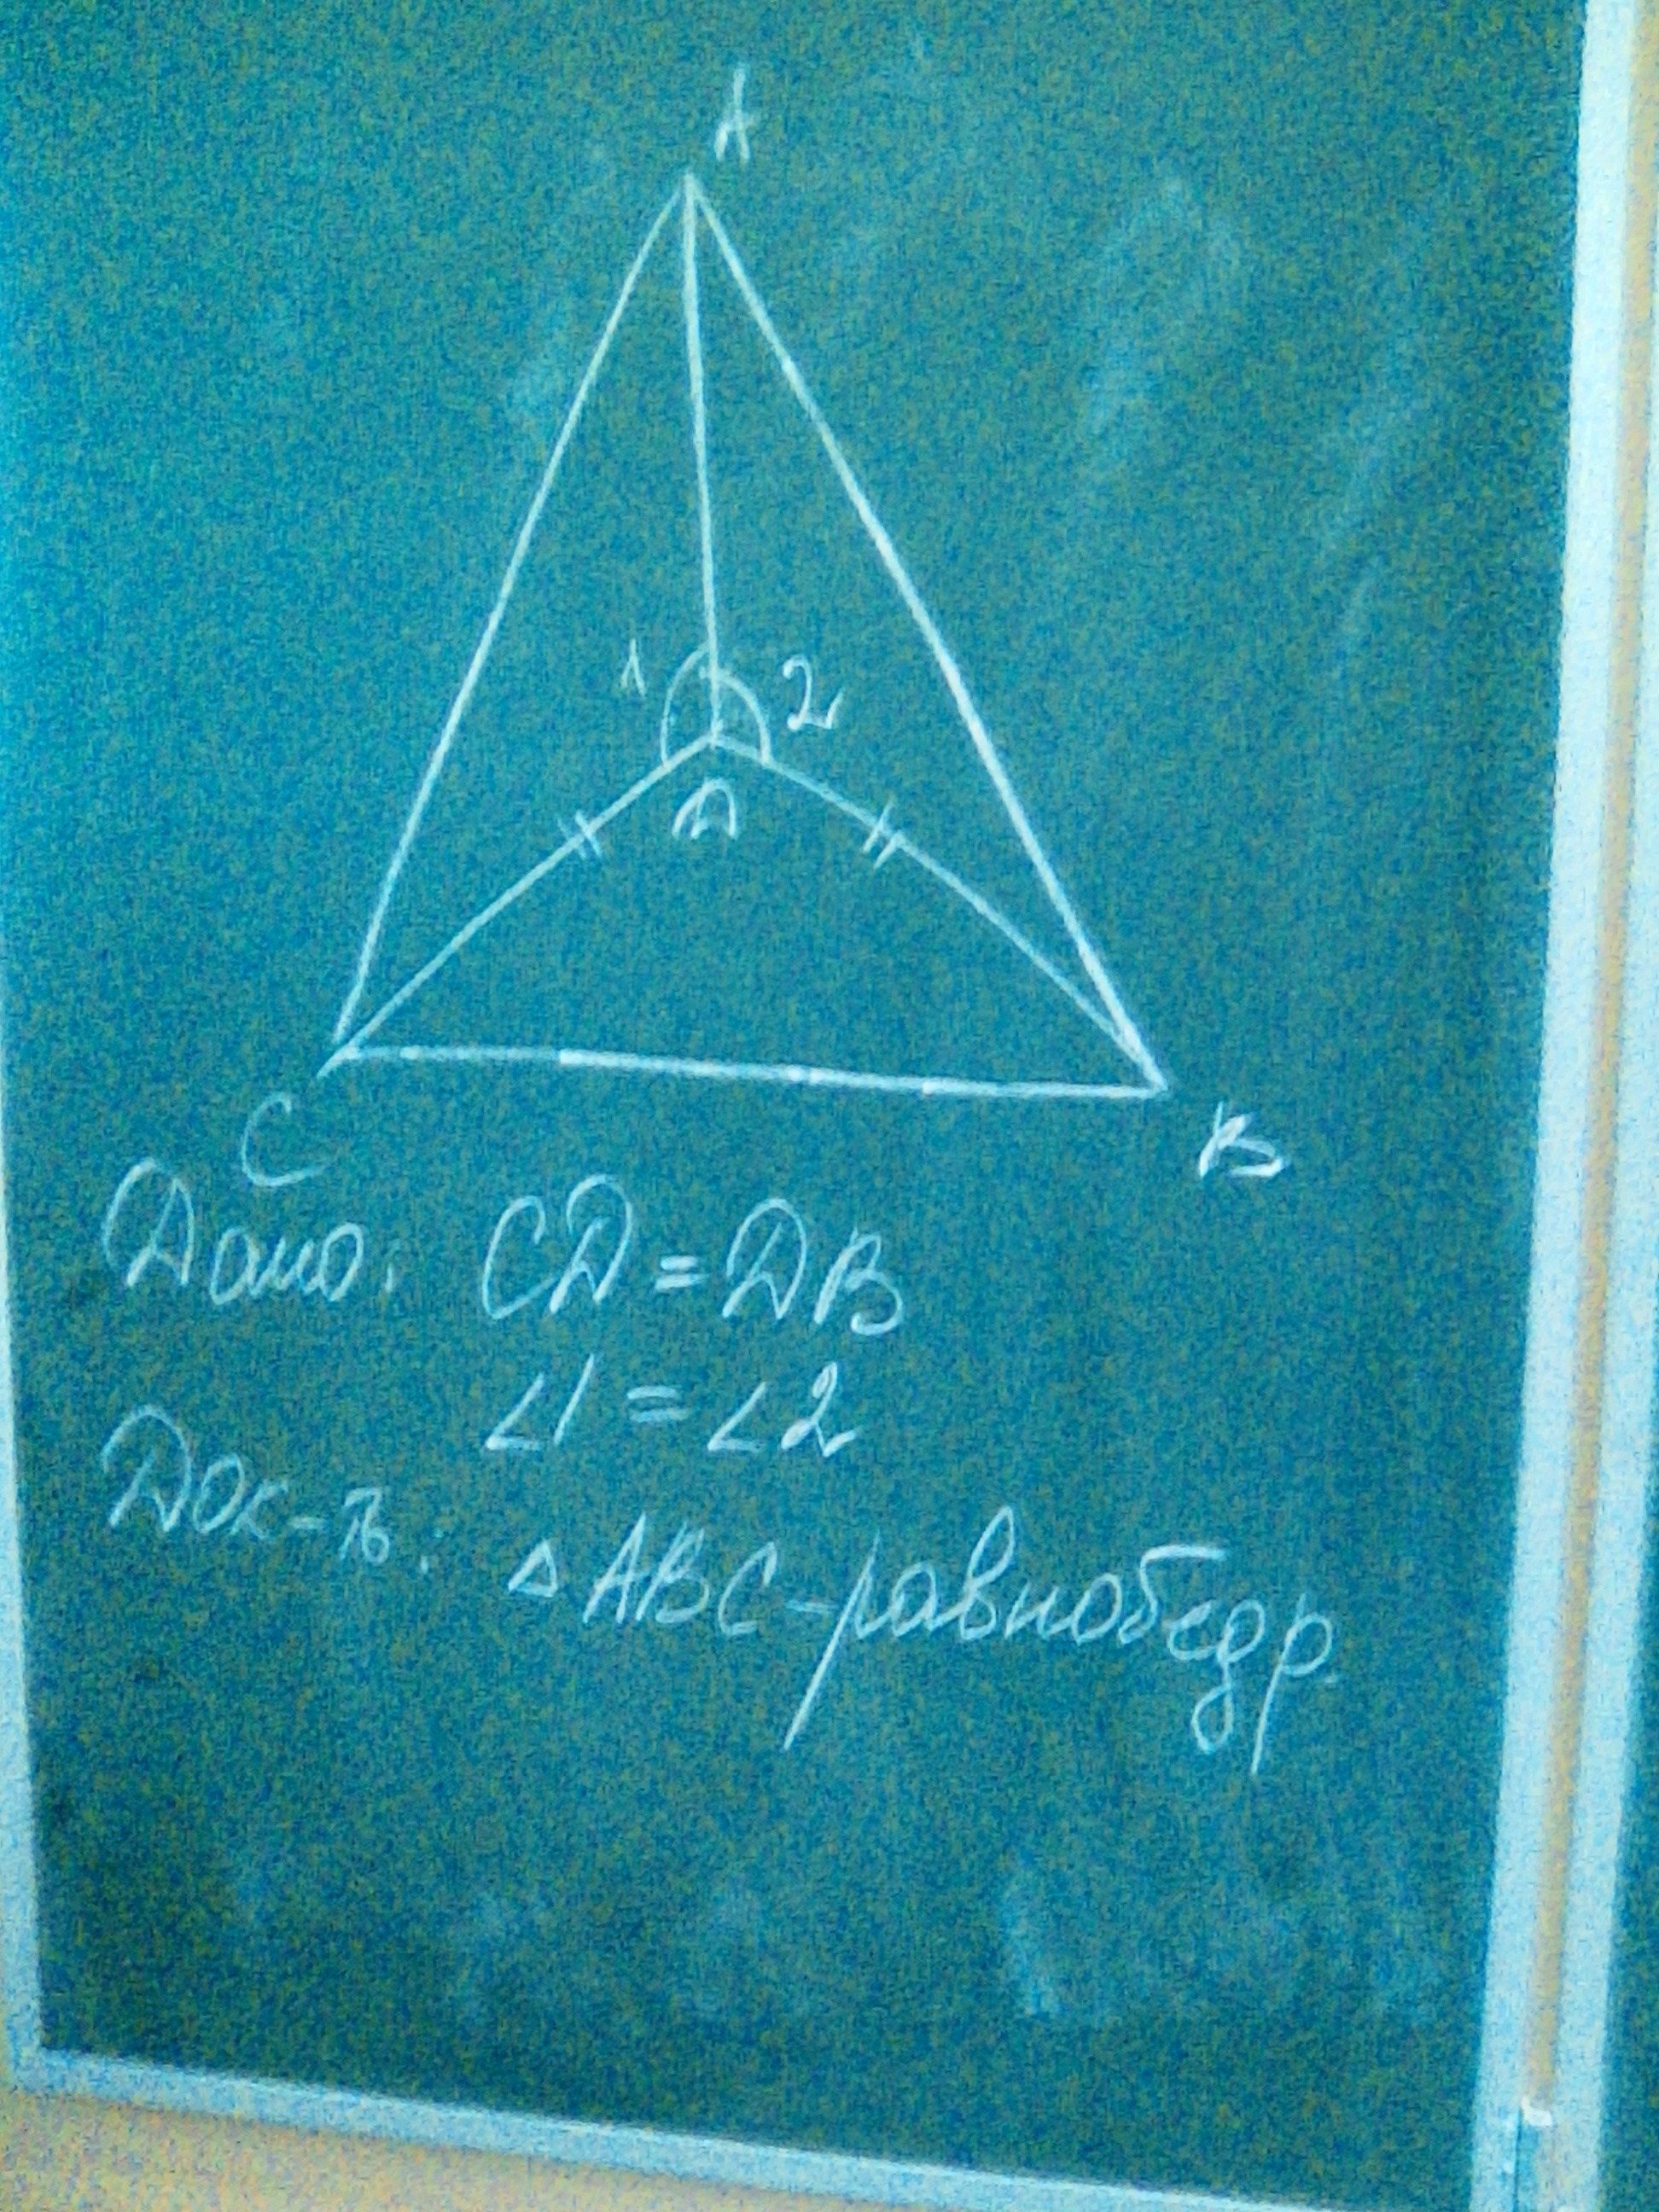 A
1 2
D
C B
Дано: CD = DB
∠1 = ∠2
Док-ть: △ABC - равнобедр.